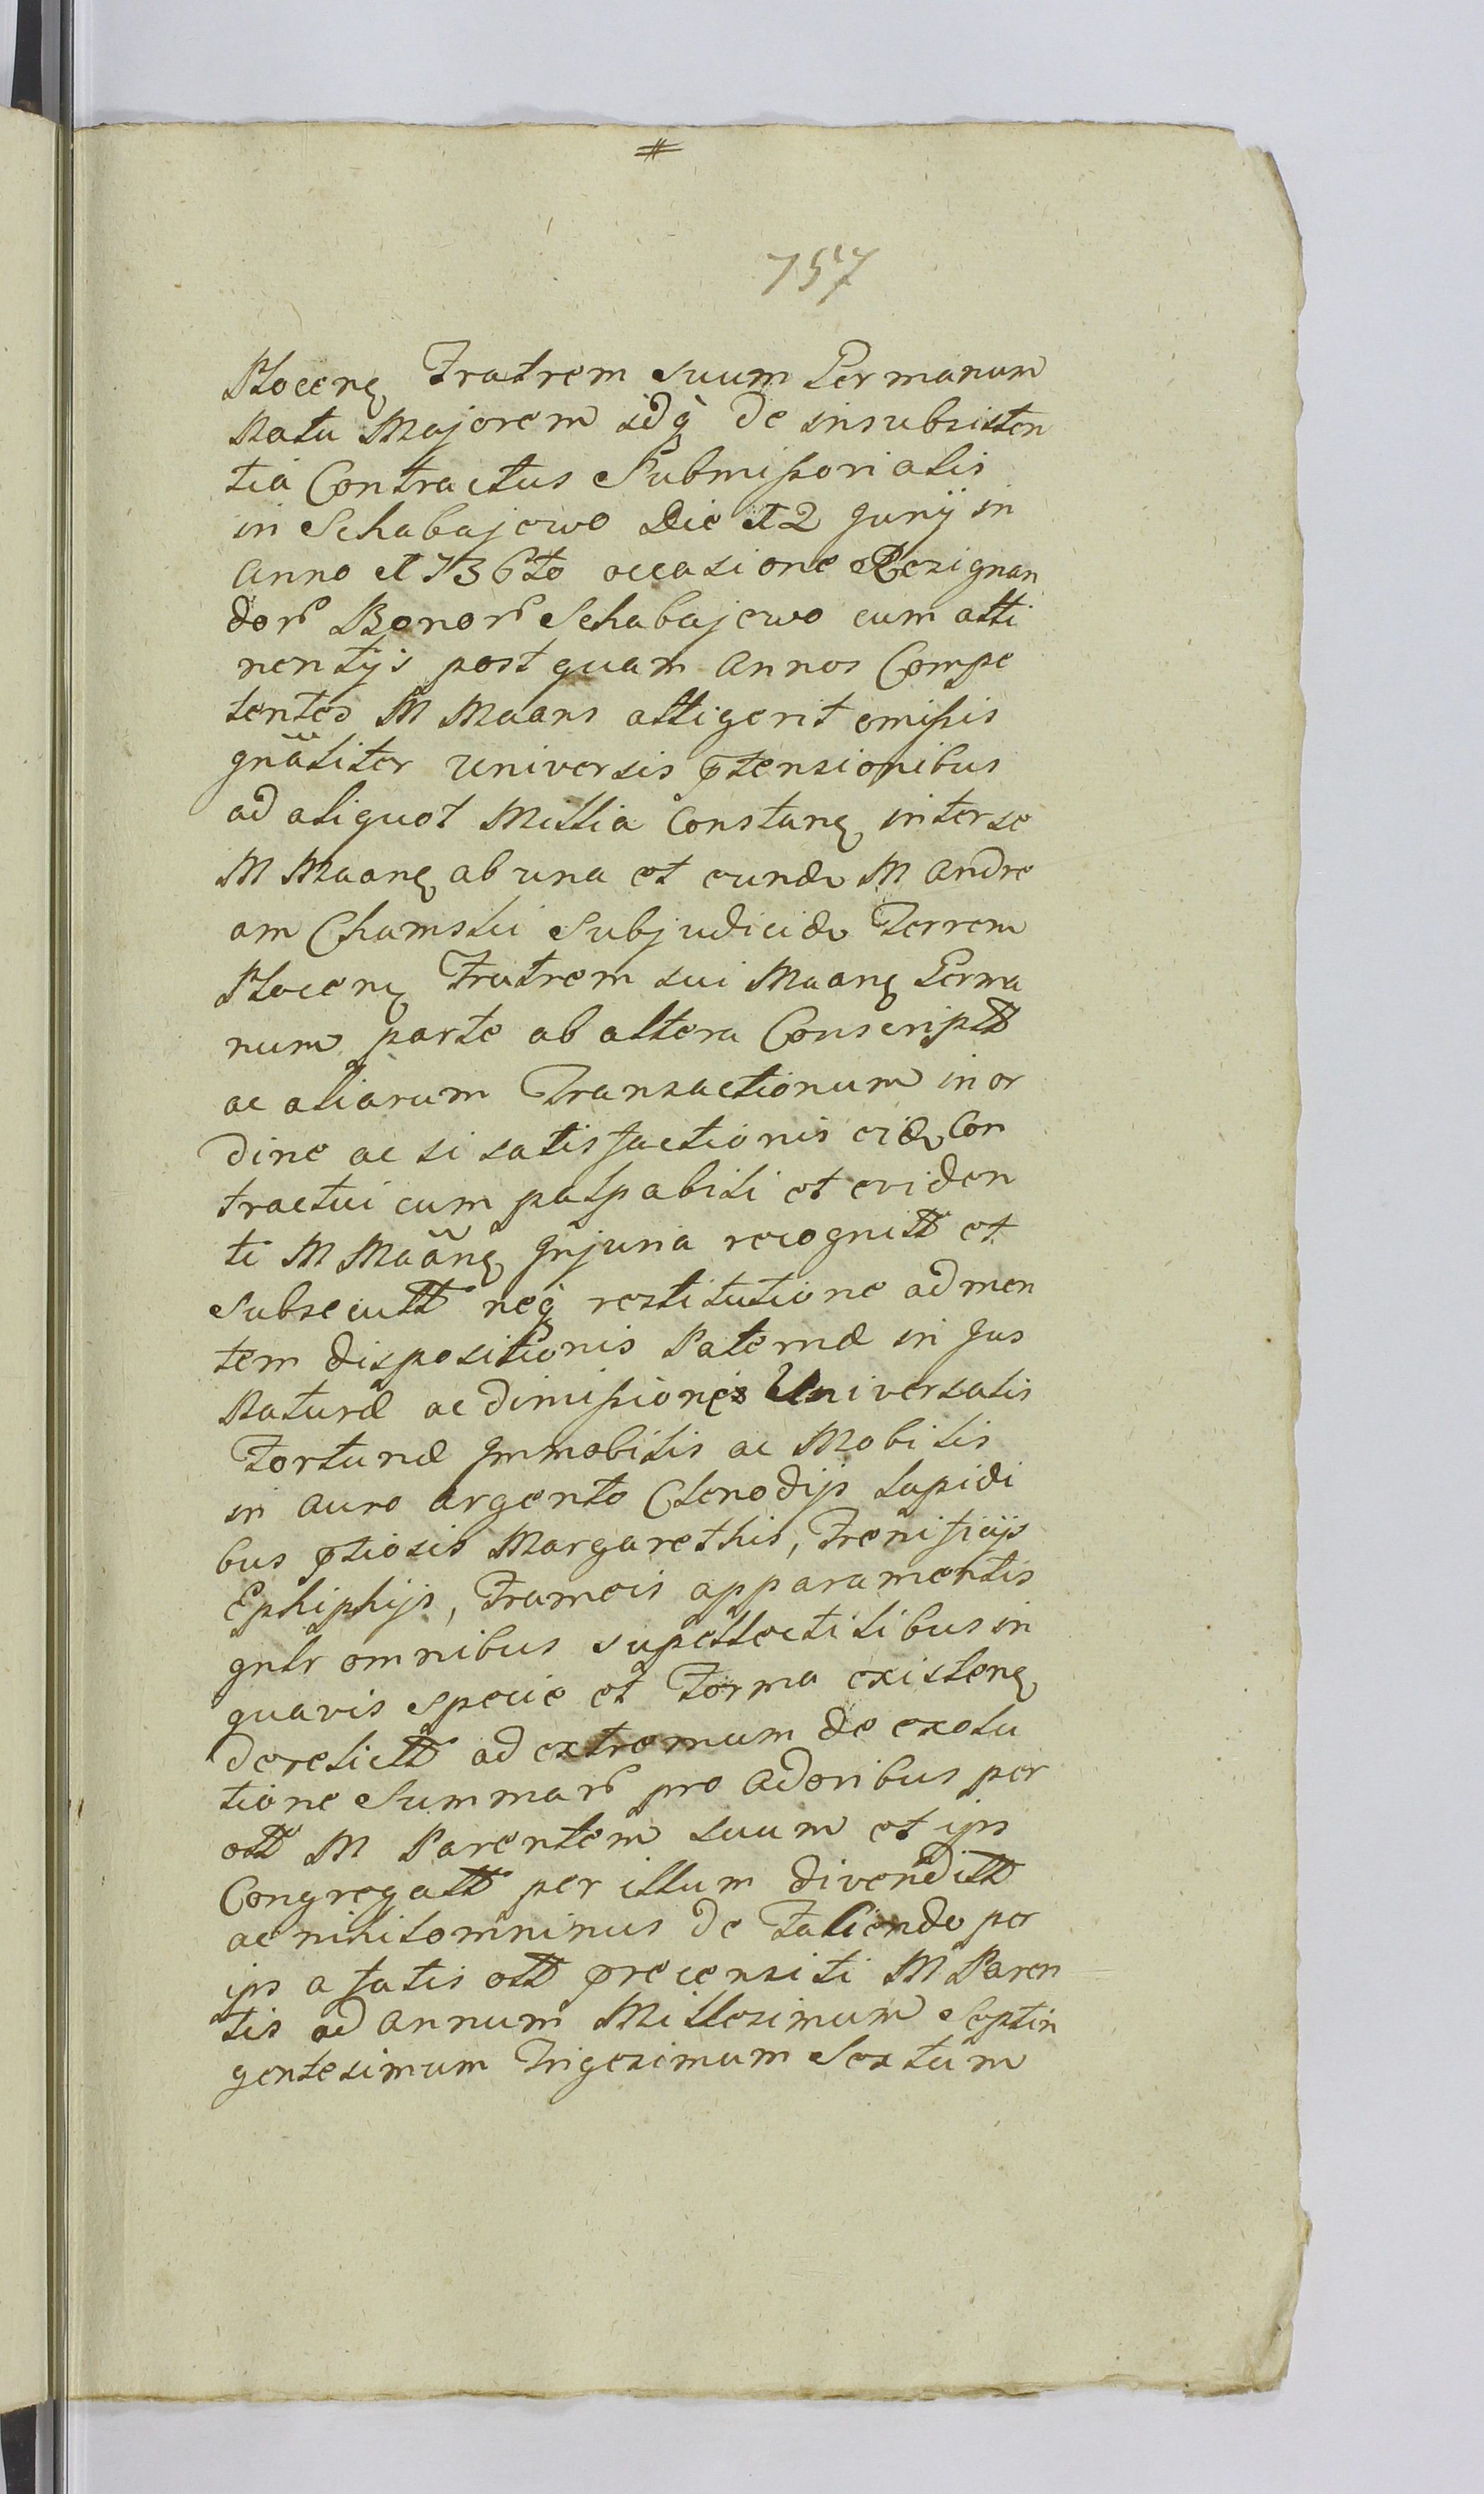 #
757
Płocens Fratrem suum Germanum
Natu Majorem idq̀ de insubsisten
tia Contractus Submissorialis
in Schabajewo Die 12 Junij in
Anno 1736to occasione Rezignan
dor Bonor Schabajewo cum atti
nentijs post quam Annos Compe
tentes M Maans attigerit omissis
gnäliter universis ptensionibus
ad aliquot Millia Constanẽ inter se
M Maanẽ ab una et eunde M Andre
am Chamski Subjudicide Terrem
Płocenẽ Fratrem sui Maanẽ Germa
num parte ab altera Conscriptt
ac aliarum Transactionum in or
dine ac si satisfactionis eide Con
tractui cum palpabili et eviden
ti M Maãnẽ Injuria recognitt et
Subsecutt neq̀ restitutione ad men
tem dispositionis Paternæ in Jus
Naturæ ac dimissiones Universalis
Fortunæ Immobilis ac Mobilis
in Auro Argento Clenodijs Lapidi
bus ptiosis Margarethis, Frenisicijs
Ephiphijs, Frameis apparamentis
gnlr omnibus supellectilibus in
quavis specie et Forma existenẽ
derelictt ad extremum de exolu
tione Summar pro Adoribus per
ott M Parentem suum et ips
Congregatt per illum divenditt
ac nihilominus de Faciende per
ips a fatis ott precensiti M Paren
tis ad Annum Millesimum Septin
gentesimum Trigesimum Sextum